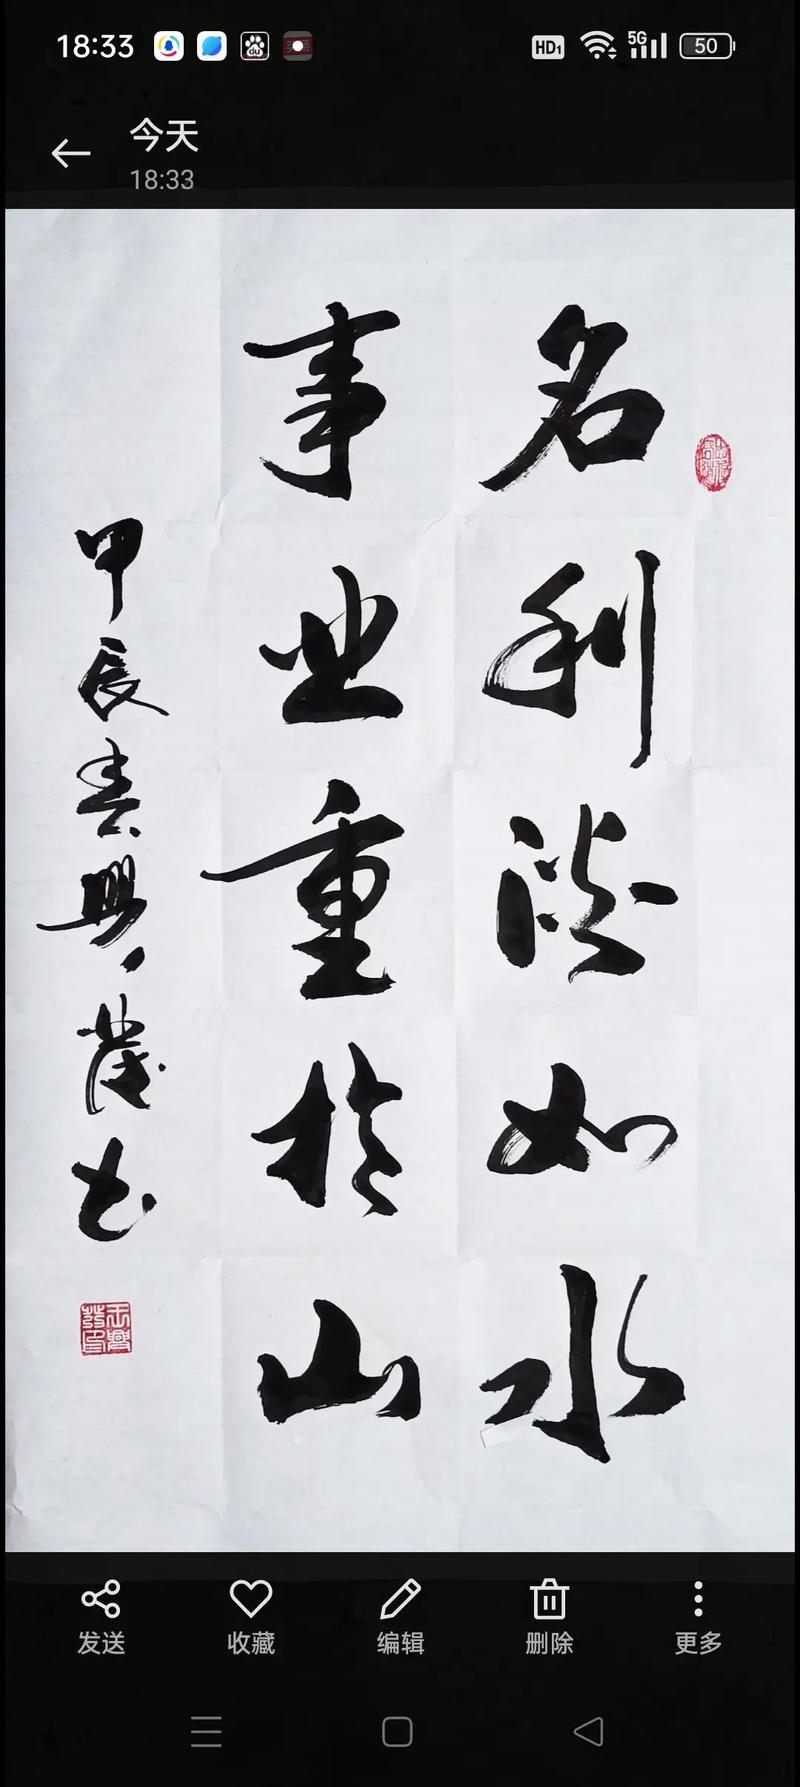 18:33
HD1
5G
50
今天
18:33
名利淡如水
事业重於山
甲辰春兴发书
发送
收藏
编辑
删除
更多